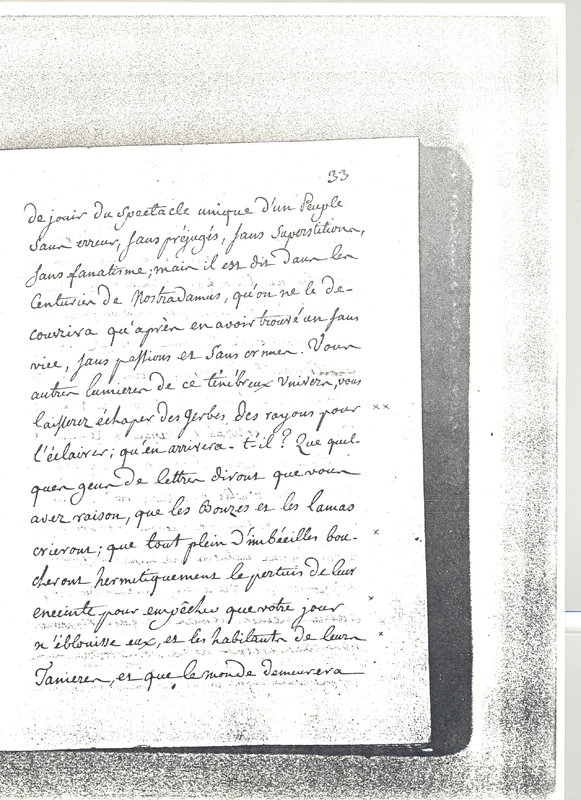 33
de jouir du spectacle unique d'un Peuple
Sans erreur, sans préjugés, sans Superstitions,
sans fanatisme; mais il est dit dans les
Centuries de Nostradamus, qu'on ne le dé-
couvrira qu'après en avoir trouvé un sans
vice, sans passions et sans crimes. Vous
autres lumieres de ce ténébreux Univers, vous
laisserez échaper des gerbes des rayons pour ××
l'éclairer; qu'en arrivera-t-il? Que quel-
ques gens de lettres diront que vous
avez raison, que les Bonzes et les lamas
crieront; que tout plein d'imbécilles bou- ×
cheront hermitiquement le pertuis de leur
enceinte pour empêcher que votre jour ×
n'éblouisse eux, et les habitants de leurs ×
Tanieres, et que le monde demeurera